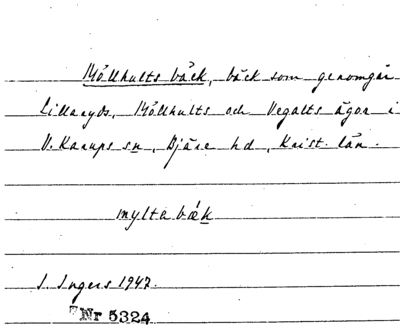 Möllhults bäck, bäck som genomgår
Lillaryds, Möllhults och Vegalts ägor i
V. Karups sn, Bjäre hd, Krist. län.
mylta bæk
I. Ingers 1947.
Nr 5324